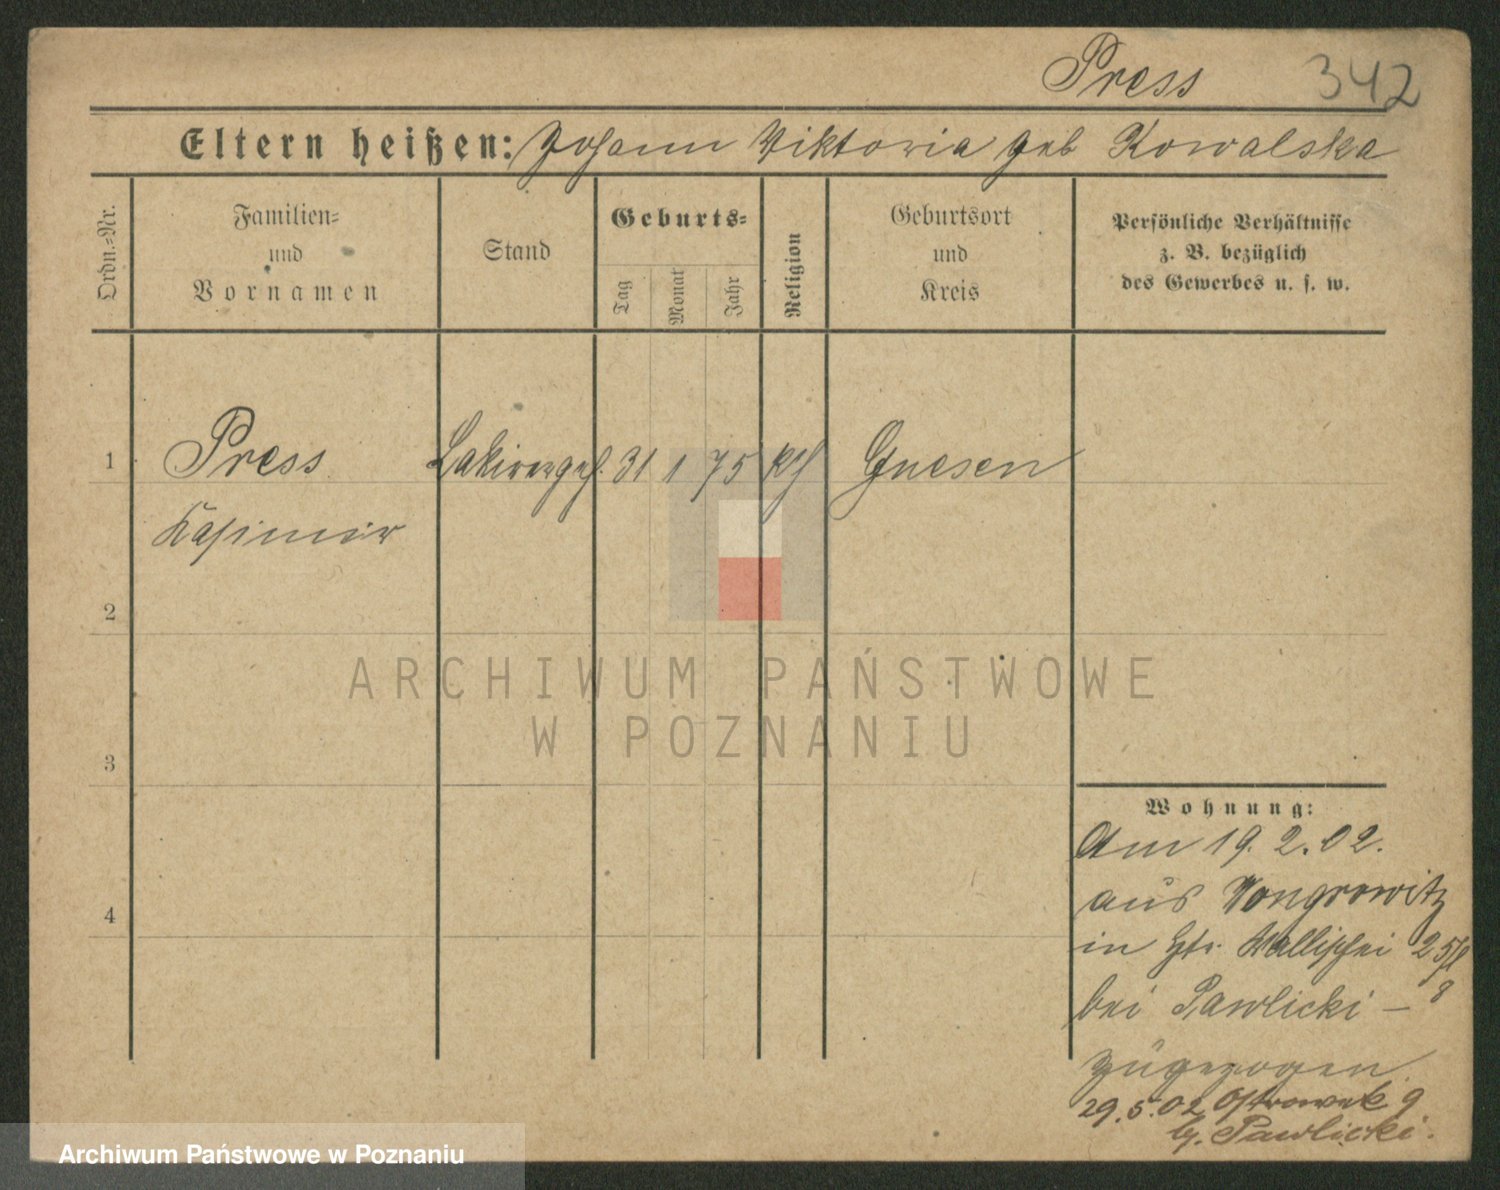 Press 342
Eltern heißen: Johann Viktoria geb Kowalska
Ordn.=Nr.
Familien=
und
Vornamen
Stand
Geburts=
Tag
Monat
Jahr
Religion
Geburtsort
und
Kreis
Persönliche Verhältnisse
z. B. bezüglich
des Gewerbes u. s. w.
1 Press Lakirergeh. 31 1 75 kth Gnesen
Kasimir
2
ARCHIWUM PAŃSTWOWE
W POZNANIU
3
Wohnung:
Am 19. 2. 02.
aus Wongrowitz
4
in Wallischei
bei Pawlicki –
zugezogen
29.5.02 Ostrowek 9
b. Pawlicki.
Archiwum Państwowe w Poznaniu